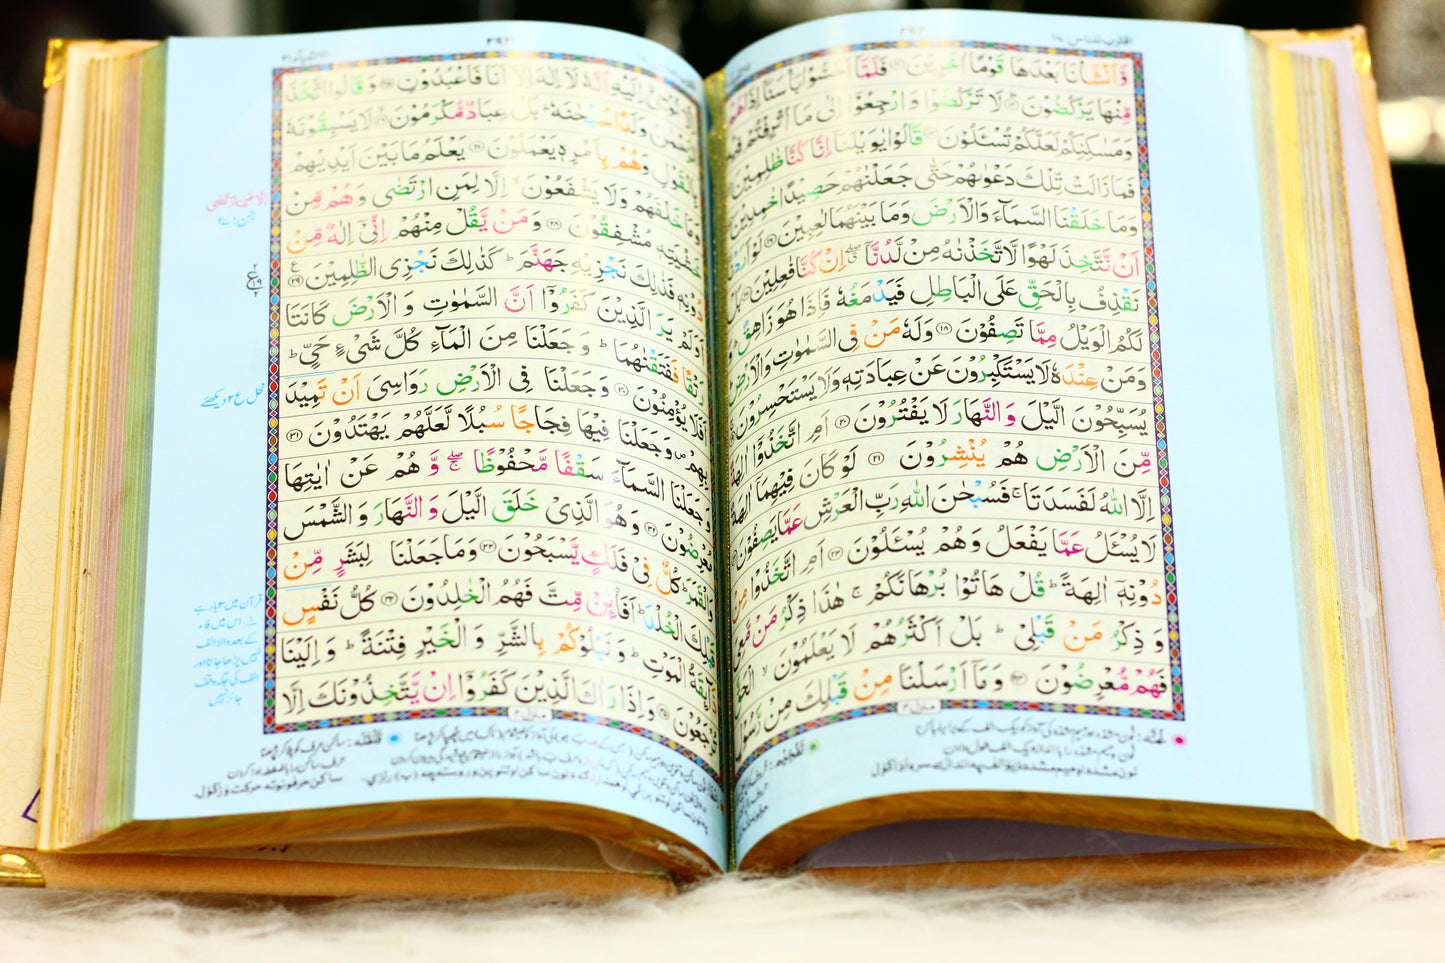 اقترب للناس ١٧
وَّ اَنْشَاْنَا بَعْدَهَا قَوْمًا اٰخَرِيْنَ ﴿١١﴾ فَلَمَّاۤ اَحَسُّوْا بَاْسَنَاۤ اِذَا هُمْ
مِّنْهَا يَرْكُضُوْنَ ﴿١٢﴾ لَا تَرْكُضُوْا وَ ارْجِعُوْۤا اِلٰى مَاۤ اُتْرِفْتُمْ فِيْهِ
وَمَسٰكِنِكُمْ لَعَلَّكُمْ تُسْئَلُوْنَ ﴿١٣﴾ قَالُوْا يٰوَيْلَنَاۤ اِنَّا كُنَّا ظٰلِمِيْنَ
فَمَا زَالَتْ تِّلْكَ دَعْوٰىهُمْ حَتّٰى جَعَلْنٰهُمْ حَصِيْدًا خٰمِدِيْنَ
وَمَا خَلَقْنَا السَّمَآءَ وَالْاَرْضَ وَمَا بَيْنَهُمَا لٰعِبِيْنَ ﴿١٦﴾ لَوْ اَرَدْنَاۤ
اَنْ نَّتَّخِذَ لَهْوًا لَّاتَّخَذْنٰهُ مِنْ لَّدُنَّاۤ ۖ اِنْ كُنَّا فٰعِلِيْنَ ﴿١٧﴾ بَلْ
نَقْذِفُ بِالْحَقِّ عَلَى الْبَاطِلِ فَيَدْمَغُهٗ فَاِذَا هُوَ زَاهِقٌ ؕ وَ
لَكُمُ الْوَيْلُ مِمَّا تَصِفُوْنَ ﴿١٨﴾ وَلَهٗ مَنْ فِى السَّمٰوٰتِ وَالْاَرْضِ
وَمَنْ عِنْدَهٗ لَا يَسْتَكْبِرُوْنَ عَنْ عِبَادَتِهٖ وَلَا يَسْتَحْسِرُوْنَ
يُسَبِّحُوْنَ الَّيْلَ وَ النَّهَارَ لَا يَفْتُرُوْنَ ﴿٢٠﴾ اَمِ اتَّخَذُوْۤا اٰلِهَةً
مِّنَ الْاَرْضِ هُمْ يُنْشِرُوْنَ ﴿٢١﴾ لَوْ كَانَ فِيْهِمَاۤ اٰلِهَةٌ
اِلَّا اللّٰهُ لَفَسَدَتَا ۚ فَسُبْحٰنَ اللّٰهِ رَبِّ الْعَرْشِ عَمَّا يَصِفُوْنَ
لَا يُسْئَلُ عَمَّا يَفْعَلُ وَهُمْ يُسْئَلُوْنَ ﴿٢٣﴾ اَمِ اتَّخَذُوْا مِنْ
دُوْنِهٖۤ اٰلِهَةً ؕ قُلْ هَاتُوْا بُرْهَانَكُمْ ۚ هٰذَا ذِكْرُ مَنْ مَّعِىَ
وَ ذِكْرُ مَنْ قَبْلِىْ ؕ بَلْ اَكْثَرُهُمْ لَا يَعْلَمُوْنَ ۙ الْحَقَّ
فَهُمْ مُّعْرِضُوْنَ ﴿٢٤﴾ وَ مَاۤ اَرْسَلْنَا مِنْ قَبْلِكَ مِنْ رَّسُوْلٍ
الانبیآء ٢١
اِلَّا نُوْحِىْۤ اِلَيْهِ اَنَّهٗ لَاۤ اِلٰهَ اِلَّاۤ اَنَا فَاعْبُدُوْنِ ﴿٢٥﴾ وَ قَالُوا اتَّخَذَ
الرَّحْمٰنُ وَلَدًا سُبْحٰنَهٗ ؕ بَلْ عِبَادٌ مُّكْرَمُوْنَ ﴿٢٦﴾ لَا يَسْبِقُوْنَهٗ
بِالْقَوْلِ وَهُمْ بِاَمْرِهٖ يَعْمَلُوْنَ ﴿٢٧﴾ يَعْلَمُ مَا بَيْنَ اَيْدِيْهِمْ
وَمَا خَلْفَهُمْ وَلَا يَشْفَعُوْنَ ۙ اِلَّا لِمَنِ ارْتَضٰى وَ هُمْ مِّنْ
خَشْيَتِهٖ مُشْفِقُوْنَ ﴿٢٨﴾ وَ مَنْ يَّقُلْ مِنْهُمْ اِنِّىْۤ اِلٰهٌ مِّنْ
دُوْنِهٖ فَذٰلِكَ نَجْزِيْهِ جَهَنَّمَ ؕ كَذٰلِكَ نَجْزِى الظّٰلِمِيْنَ ﴿٢٩﴾
اَوَلَمْ يَرَ الَّذِيْنَ كَفَرُوْۤا اَنَّ السَّمٰوٰتِ وَ الْاَرْضَ كَانَتَا
رَتْقًا فَفَتَقْنٰهُمَا ؕ وَ جَعَلْنَا مِنَ الْمَآءِ كُلَّ شَىْءٍ حَىٍّ ؕ
اَفَلَا يُؤْمِنُوْنَ ﴿٣٠﴾ وَ جَعَلْنَا فِى الْاَرْضِ رَوَاسِىَ اَنْ تَمِيْدَ
بِهِمْ ۪ وَ جَعَلْنَا فِيْهَا فِجَاجًا سُبُلًا لَّعَلَّهُمْ يَهْتَدُوْنَ ﴿٣١﴾
وَ جَعَلْنَا السَّمَآءَ سَقْفًا مَّحْفُوْظًا ۖۚ وَّ هُمْ عَنْ اٰيٰتِهَا
مُعْرِضُوْنَ ﴿٣٢﴾ وَهُوَ الَّذِىْ خَلَقَ الَّيْلَ وَ النَّهَارَ وَ الشَّمْسَ
وَالْقَمَرَ ؕ كُلٌّ فِىْ فَلَكٍ يَّسْبَحُوْنَ ﴿٣٣﴾ وَمَا جَعَلْنَا لِبَشَرٍ مِّنْ
قَبْلِكَ الْخُلْدَ ؕ اَفَا۟ئِنْ مِّتَّ فَهُمُ الْخٰلِدُوْنَ ﴿٣٤﴾ كُلُّ نَفْسٍ
ذَآئِقَةُ الْمَوْتِ ؕ وَ نَبْلُوْكُمْ بِالشَّرِّ وَ الْخَيْرِ فِتْنَةً ؕ وَ اِلَيْنَا
تُرْجَعُوْنَ ﴿٣٥﴾ وَ اِذَا رَاٰكَ الَّذِيْنَ كَفَرُوْۤا اِنْ يَّتَّخِذُوْنَكَ اِلَّا
نحل ع ٢ دیکھئے